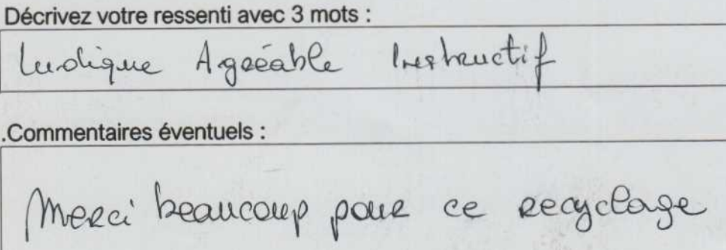 Décrivez votre ressenti avec 3 mots :
Ludique Agréable Instructif
.Commentaires éventuels :
Merci beaucoup pour ce recyclage